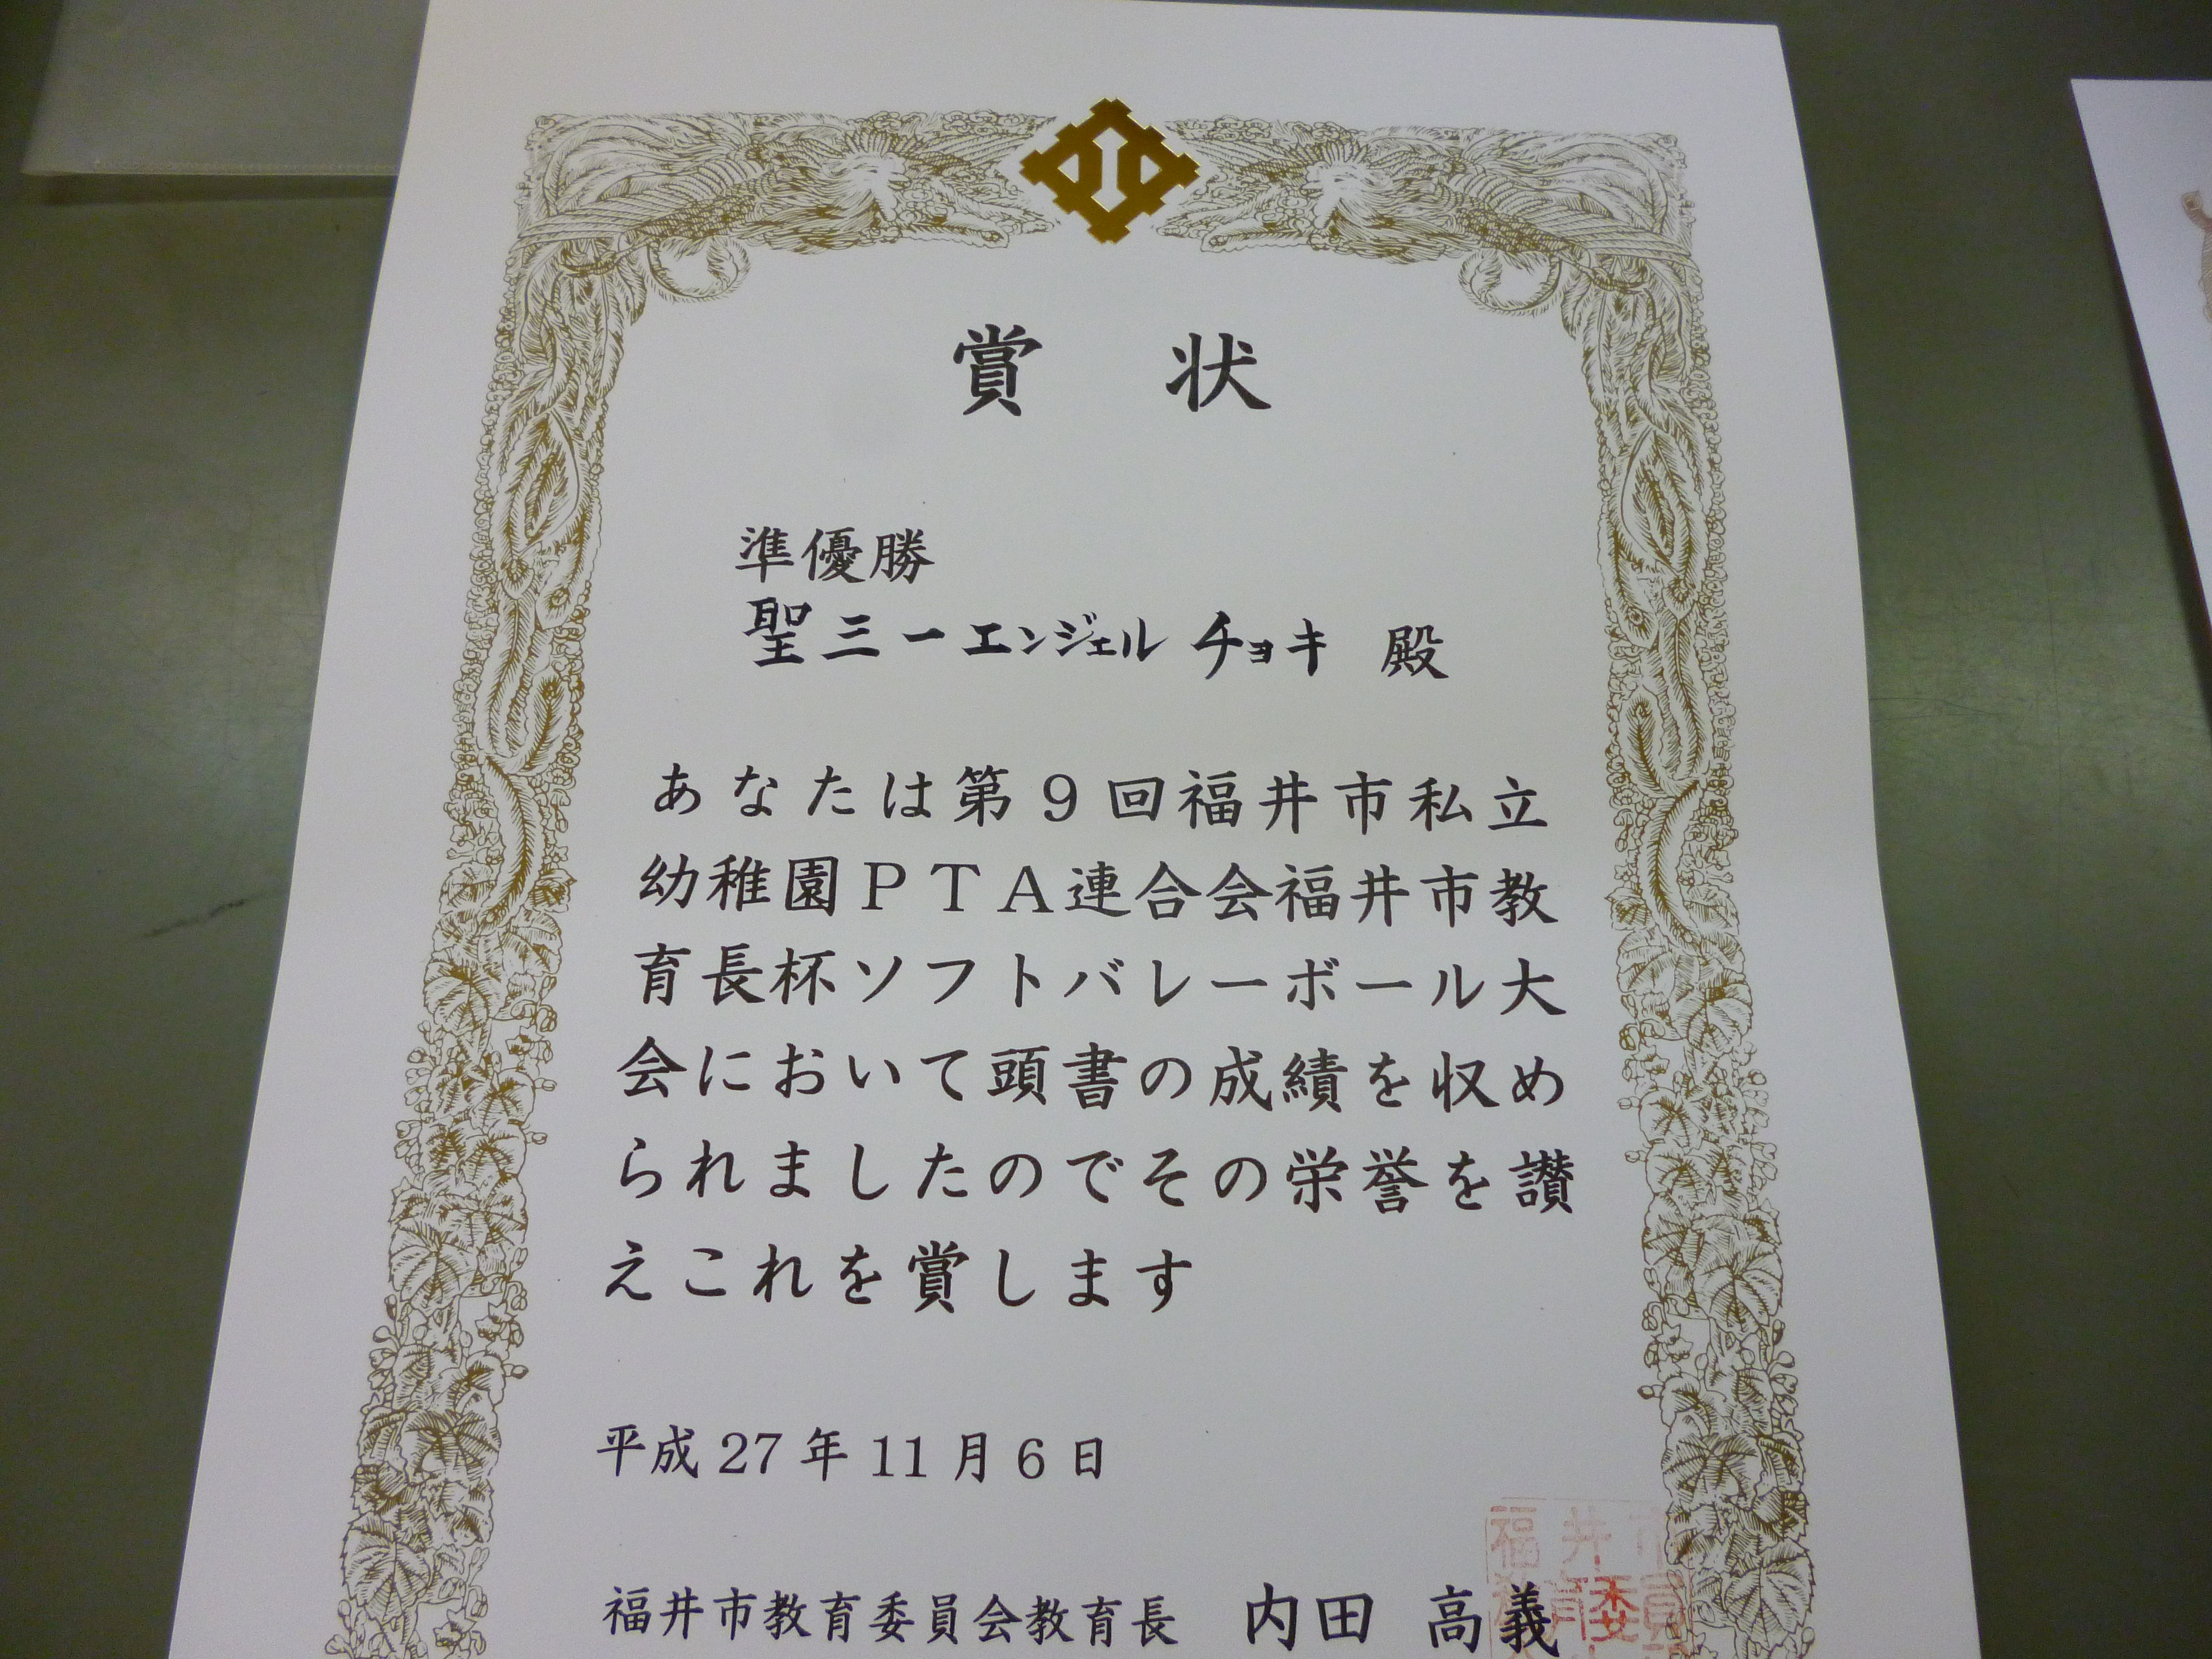 賞状
準優勝
聖三一エンジェルチョキ 殿
あなたは第9回福井市私立
幼稚園PTA連合会福井市教
育長杯ソフトバレーボール大
会において頭書の成績を収め
られましたのでその栄誉を讃
えこれを賞します
平成27年11月6日
福井市教育委員会教育長 内田 高義